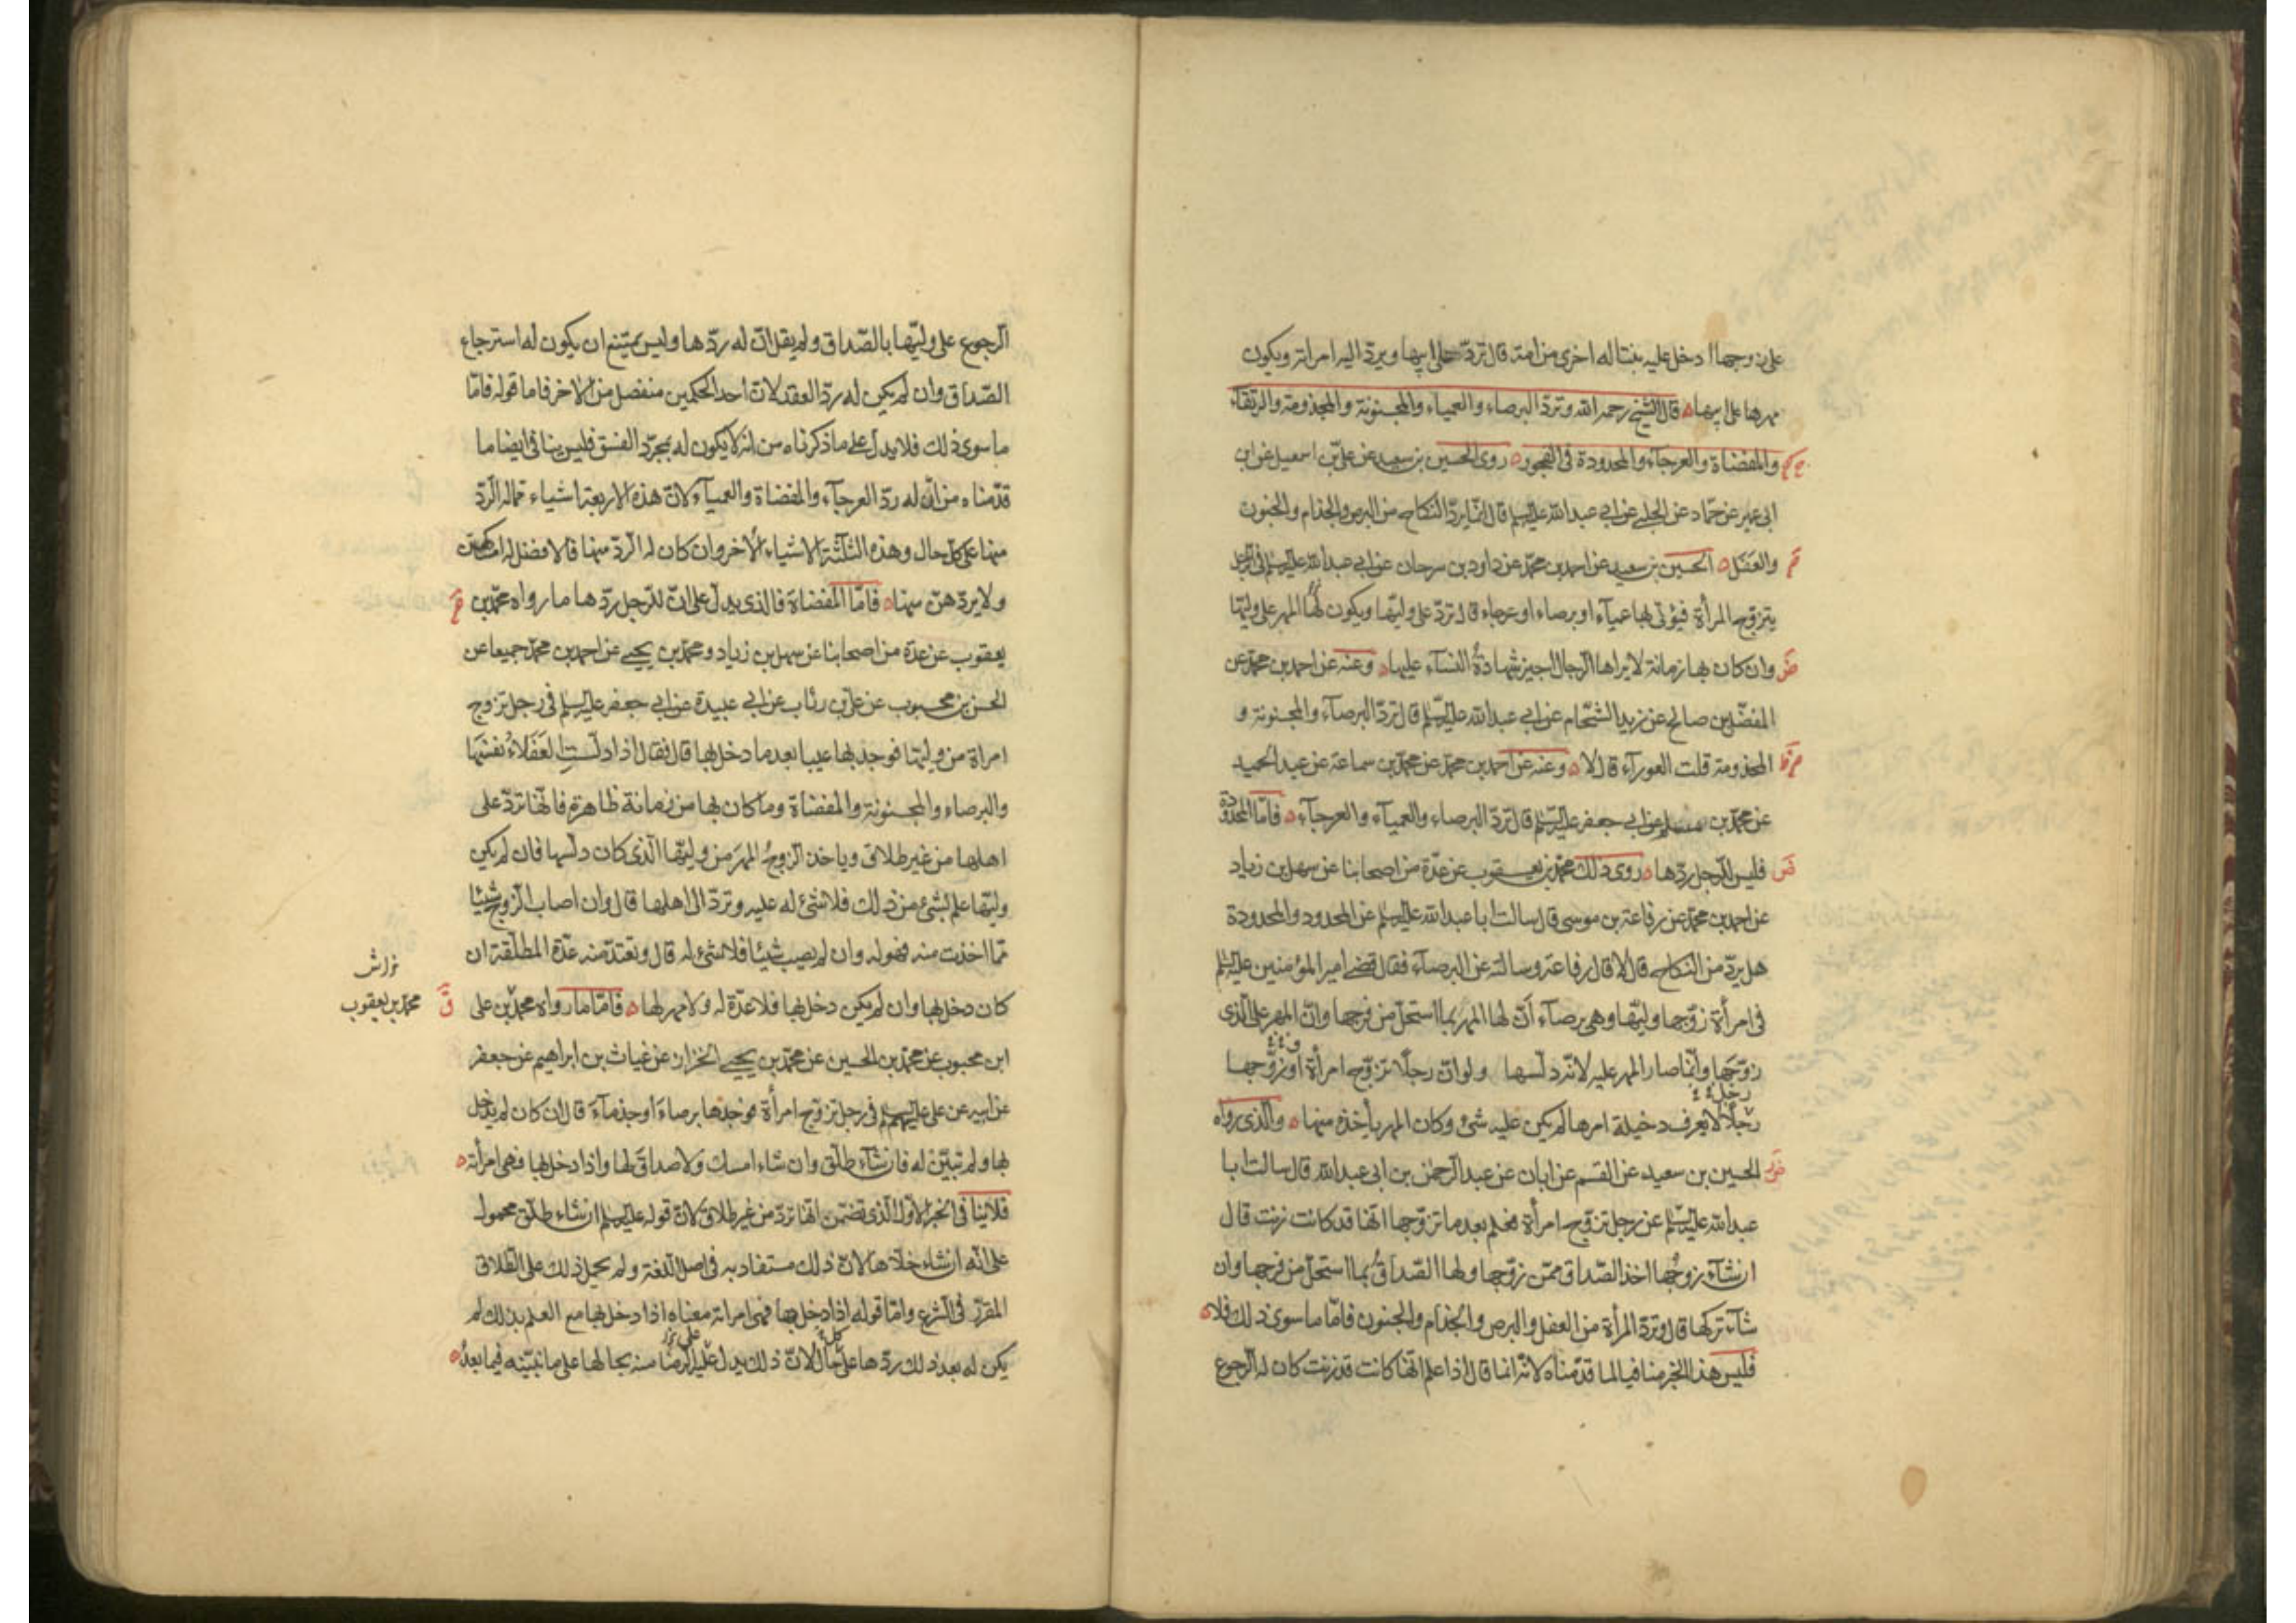 على زوجها ادخل عليه بنتا له اخرى من امة قال تردّ على ابيها ويردّ اليه امراته ويكون
مهرها على ابيها ه قال الشيخ رحمه الله وتردّ البرصاء والعمياء والمجنونة والمجذومة والرتقاء
والمفضاة والعرجاء والمحدودة فى الفجور ه روى الحسين بن سعيد عن علىّ بن اسمعيل عن ابن
ابى عمير عن حمّاد عن الحلبى عن ابى عبد الله عليه السلم قال انّما يردّ النكاح من البرص والجذام والجنون
والعَفَل ه الحسين بن سعيد عن احمد بن محمّد عن داود بن سرحان عن ابى عبد الله عليه السلم فى الرجل
يتزوّج المرأة فيؤتى بها عمياء او برصاء او عرجاء قال تردّ على وليّها ويكون لها المهر على وليّها
وان كان بها زمانة لا يراها الرجال اجيز شهادةُ النساء عليها ه وعنه عن احمد بن محمّد عن
المفضّل بن صالح عن زيد الشحّام عن ابى عبد الله عليه السلم قال تردّ البرصاء والمجنونة و
المجذومة قلت العوراء قال لا ه وعنه عن احمد بن محمّد عن محمّد بن سماعة عن عبد الحميد
عن محمّد بن مسلم عن ابى جعفر عليه السلم قال تردّ البرصاء والعمياء والعرجاء ه فامّا المحدودة
فليس للرجل ردّها ه روى ذلك محمّد بن يعقوب عن عدّة من اصحابنا عن سهل بن زياد
عن احمد بن محمّد عن رفاعة بن موسى قال سالت ابا عبد الله عليه السلم عن المحدود والمحدودة
هل يردّ من النكاح قال لا قال رفاعة وسالته عن البرصاء فقال قضى امير المؤمنين عليه السلم
فى امرأة زوّجها وليّها وهى برصاء انّ لها المهر بما استحلّ من فرجها وانّ المهر على الّذى
زوّجها وانّما صار المهر عليه لانّه دلّسها ولو انّ رجلًا تزوّج امرأة او زوّجها
رجلًا لا يعرف دخيلة امرها لم يكن عليه شئ وكان المهر يأخذه منها ه والّذى رواه
الحسين بن سعيد عن القسم عن ابان عن عبد الرحمن بن ابى عبد الله قال سالت ابا
عبد الله عليه السلم عن رجل تزوّج امرأة فعلم بعد ما تزوّجها انّها قد كانت زنت قال
ان شاء زوجُها اخذ الصّداق ممّن زوّجها ولها الصّداقُ بما استحلّ من فرجها وان
شاء تركها قال وتردّ المرأة من العفل والبرص والجُذام والجنون فامّا ما سوى ذلك فلا ه
فليس هذا الخبر منافيا لما قدّمناه لانّه انما قال اذا علم انّها كانت قد زنت كان له الرجوع
الرجوع على وليّها بالصّداق ولم يقل انّ له ردّها وليس يمتنع ان يكون له استرجاع
الصّداق وان لم يكن له ردّ العقد لانّ احد الحكمين منفصل من الاخر فاما قوله فامّا
ما سوى ذلك فلا يدل على ما ذكرناه من انّه لا يكون له بمجرّد الفسق فليس ينافى ايضا ما
قدّمناه من انّ له ردّ العرجاء والمفضاة والعمياء لانّ هذه الاربعة اشياء ممّا له الردّ
منها على كلّ حال وهذه الثلثة الاشياء الأخر وان كان له الردّ منها فالافضل له امساكهن
ولا يردّهنّ منها ه فامّا المفضاة فالذى يدل على انّ للرجل ردّها ما رواه محمّد بن
يعقوب عن عدّة من اصحابنا عن سهل بن زياد ومحمّد بن يحيى عن احمد بن محمّد جميعا عن
الحسن بن محبوب عن على بن رئاب عن ابى عبيدة عن ابى جعفر عليه السلم فى رجل تزوج
امراة من وليّها فوجد بها عيبا بعد ما دخل بها قال فقال اذا دلّست العَفلاءُ نفسَها
والبرصاء والمجنونة والمفضاة وما كان بها من زمانة ظاهرة فانّها تردّ على
اهلها من غير طلاق وياخذ الزوجُ المهرَ من وليّها الّذى كان دلّسها فان لم يكن
وليّها علم بشئ من ذلك فلا شئ له عليه وتردّ الى اهلها قال وان اصاب الزوج شيئا
ممّا اخذت منه فهو له وان لم يصب شيئا فلا شئ له قال وتعتدّ منه عدّة المطلّقة ان
كان دخل بها وان لم يكن دخل بها فلا عدّة له ولا مهر لها ه فامّا ما رواه محمّد بن على
محمّد بن يعقوب
ابن محبوب عن محمّد بن الحسين عن محمّد بن يحيى الخزاز عن غياث بن ابراهيم عن جعفر
عن ابيه عن على عليهم السلم فى رجل تزوج امرأة فوجدها برصاءَ او جذماءَ قال ان كان لم يدخل
بها ولم تبيّن له فان شاء طلّق وان شاء امسك ولا صداقَ لها واذا دخل بها فهى امرأته ه
فلا ينافى الخبر الاوّل الّذى تضمّن انّها تردّ من غير طلاق لانّ قوله عليه السلم ان شاء طلّق محمول
على انّه ان شاء خلّاها لانّ ذلك مستفاد به فى اصل اللغة ولم يحمل ذلك على الطلاق
المقرّر فى الشرع وامّا قوله اذا دخل بها فهى امراته معناه اذا دخل بها مع العلم بذلك لم
يكن له بعد ذلك ردّها على حال لانّ ذلك يدل على الرضا منه بحالها على ما نبيّنه فيما بعدُ ه